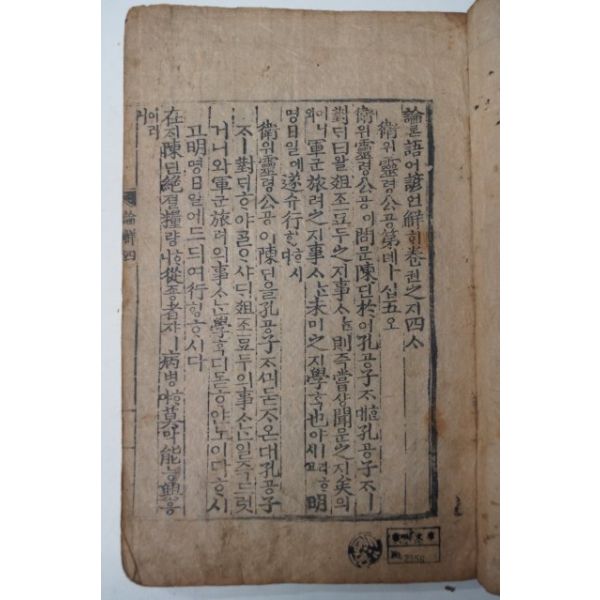 論론語어諺언解ᄒᆡ卷권之지四ᄉᆞ
衛위靈령公공第뎨十십五오
衛위靈령公공이問문陳딘於어孔공子ᄌᆞᄒᆞᆫ대孔공子ᄌᆞㅣ
對ᄃᆡ曰왈俎조豆두之지事ᄉᆞᄂᆞᆫ則즉嘗샹聞문之지矣의
어니와軍군旅려之지事ᄉᆞᄂᆞᆫ未미之지學ᄒᆞᆨ也야ㅣ라ᄒᆞ시고明
명日일에遂슈行ᄒᆡᆼᄒᆞ시다
衛위靈령公공이陳딘을孔공子ᄌᆞᄭᅴ묻ᄌᆞ온대孔공子
ᄌᆞㅣ對ᄃᆡᄒᆞ야ᄀᆞᆯᄋᆞ샤ᄃᆡ俎조豆두의事ᄉᆞᄂᆞᆫ일즉드럿
거니와軍군旅려의事ᄉᆞᄂᆞᆫ學ᄒᆞᆨ디몯ᄒᆞ얀노이다ᄒᆞ시
고明명日일에드듸여行ᄒᆡᆼᄒᆞ시다
在ᄌᆡ陳딘絶졀糧량ᄒᆞ니從죵者쟈ㅣ病병ᄒᆞ야莫막能능興흥
論解 四